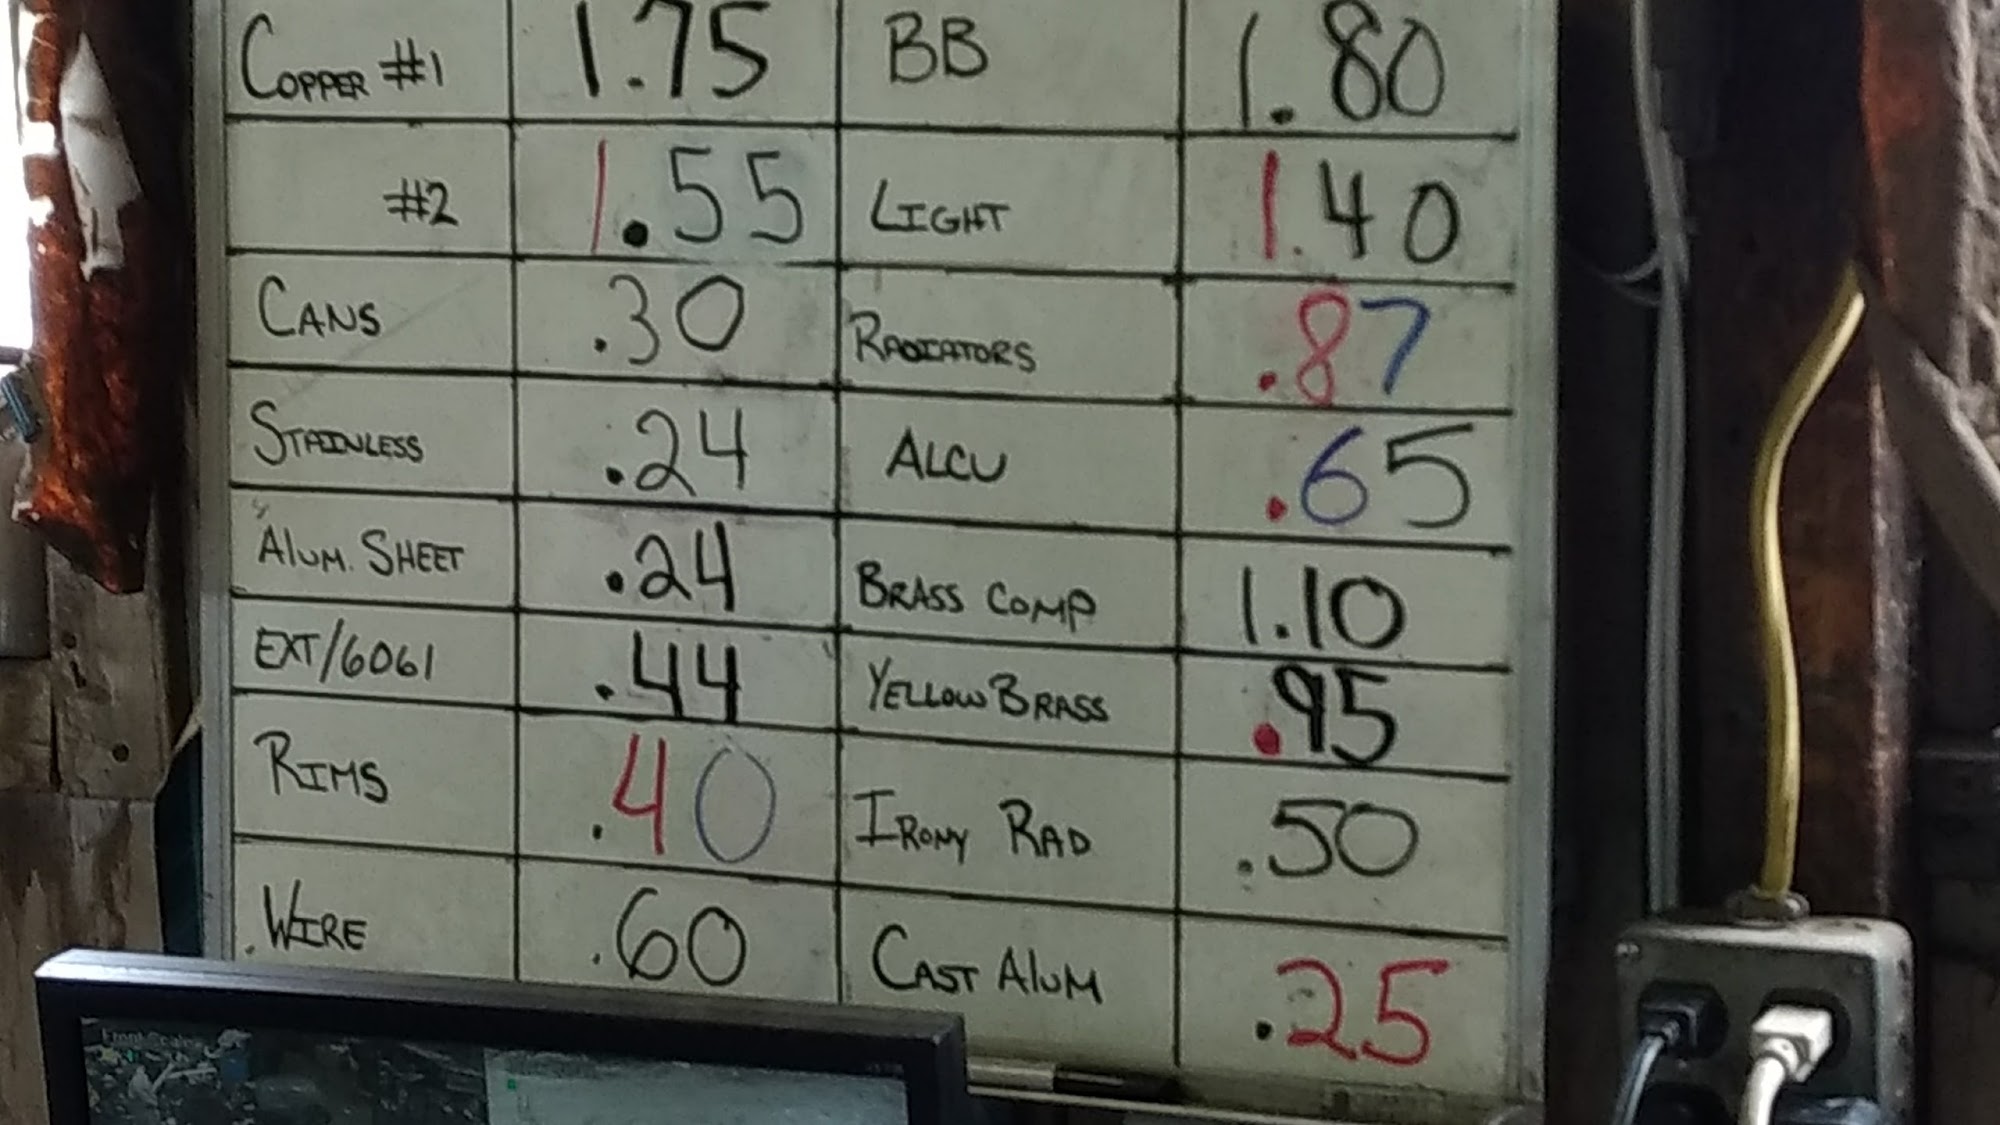 COPPER #1 1.75 BB 1.80
#2 1.55 LIGHT 1.40
CANS .30 RADIATORS .87
STAINLESS .24 ALCU .65
Alum. SHEET .24 BRASS COMP 1.10
EXT/6061 .44 YELLOW BRASS .95
RIMS .40 IRONY RAD .50
WIRE .60 CAST Alum .25
Front Scale